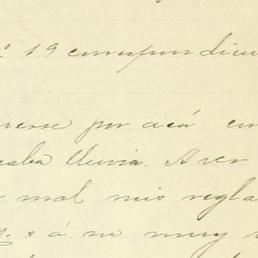 19 correspondien
nerse por acá en
caba lluvia. A ver
mal mis regla
s á no muy